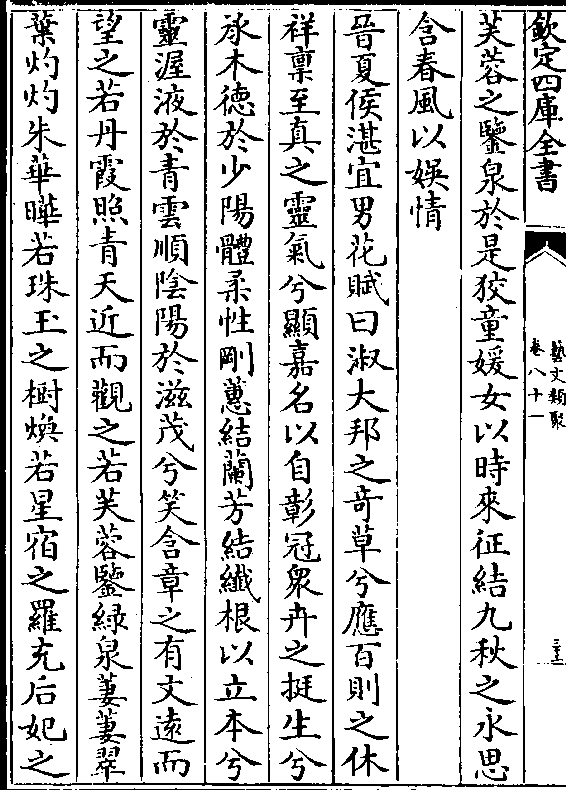 欽定四庫全書
藝文類聚
卷八十一
三十三
芙蓉之鑒泉於是狡童媛女以時來征結九秋之永思
含春風以娛情
晉夏侯湛宜男花賦曰淑大邦之竒草兮應百則之休
祥稟至真之靈氣兮顯嘉名以自彰冠衆卉之挺生兮
承木德於少陽體柔性剛蕙結蘭芳結纖根以立本兮
靈渥液於青雲順陰陽於滋茂兮笑含章之有文遠而
望之若丹霞照青天近而觀之若芙蓉鑒緑泉萋萋翠
葉灼灼朱華曄若珠玉之樹煥若星宿之羅充后妃之